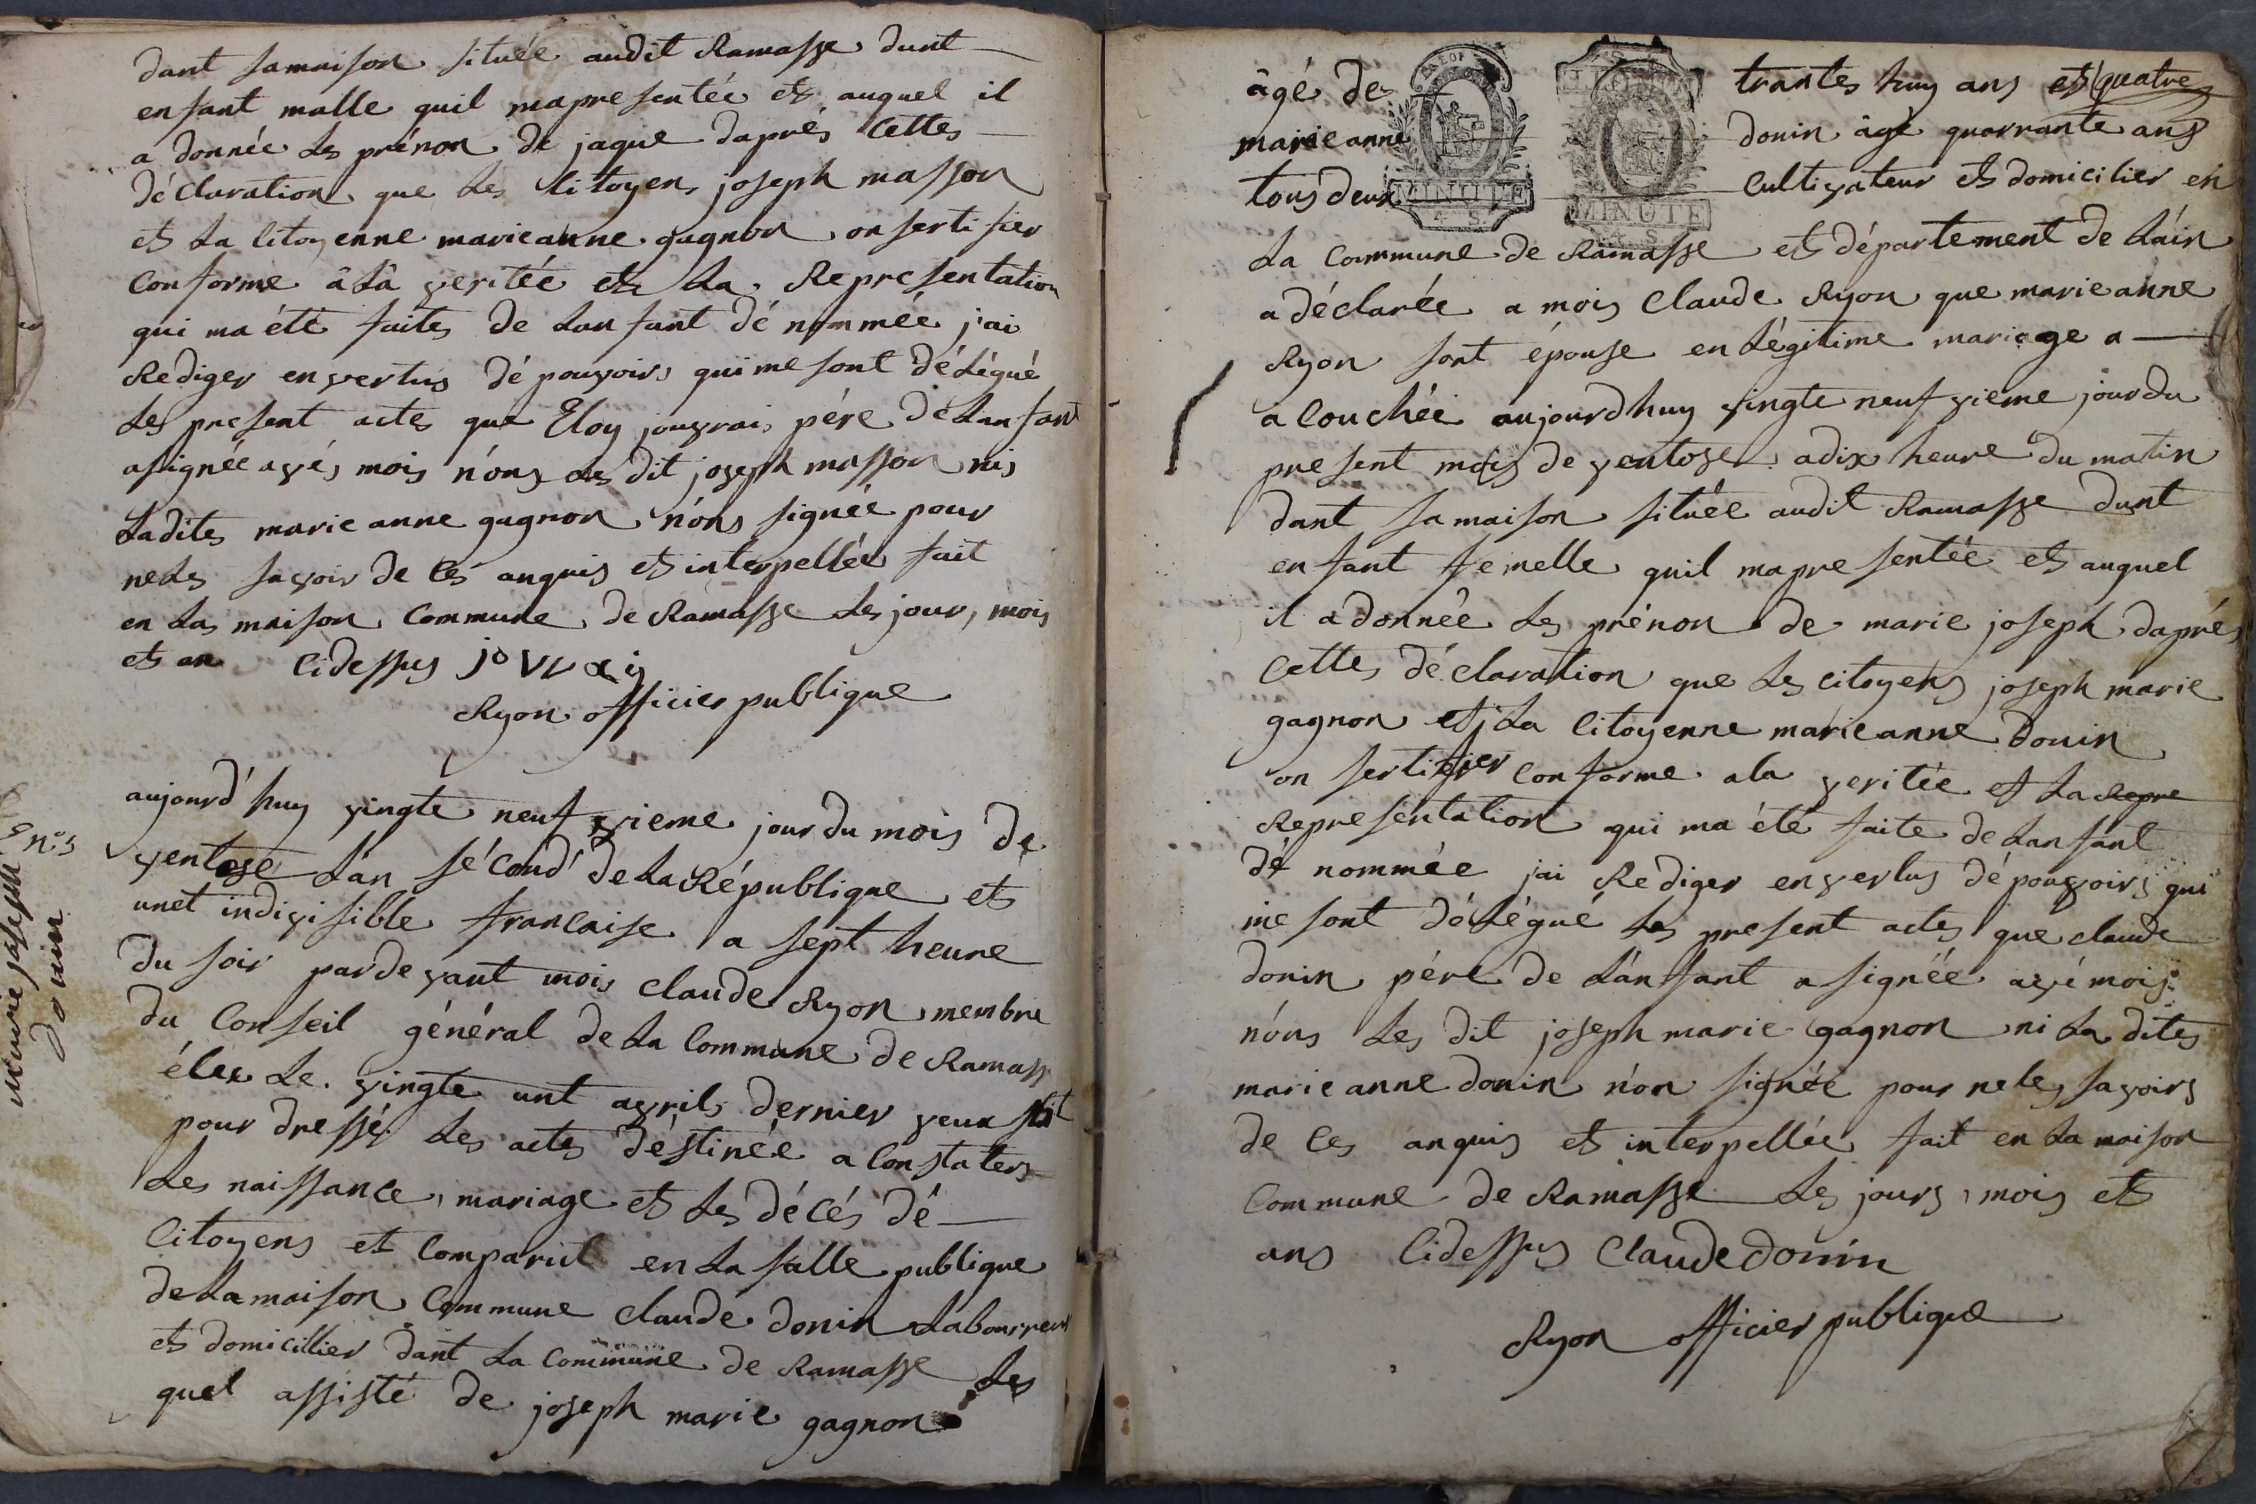 dant sa maison située audit Ramasse dunt
enfant malle quil mapresentée et auquel il
a donnée les prénon de jaque daprés cettes
déclaration que les citoyen joseph masson
et la citoyenne marieanne gagnon on sertifier
conforme â la veritée et la Representation
qui ma été faites de lanfant dé nommée j'ai
Rediger en vertus dé pouvoirs qui me sont délégué
les present actes que Eloy jouvrai pére de lanfant
a signée avés mois n'ons les dit joseph masson nis
ladites marie anne gagnon n'ons signée pour
neles savoir de ces anquis et interpellée fait
en las maison commune de Ramasse les jour, mois
et an cidessus jovvraiy
Ryon officier publique
n.° 5
marie joseph
donin
aujourd'huy vingte neuf vieme jour du mois de
ventose l'an sécond de la République et
unet indivisible francaise a sept heure
du soir pardevant mois claude Ryon membre
du conseil général de la commune de Ramass
élee le vingte unt avril dernier veux
pour dressé les actes déstinée a constaters
les naissance, mariage et les décés dé
citoyens et comparut en la salle publique
de la maison commune claude donin labourreur
et domicillier dant la commune de Ramasse les
quel assisté de joseph marie gagnon
âgé des trantes huy ans et quatre
marie anne donin âgé quarrante ans
tous deux cultivateur et domicilier en
MINUTE
4. S.
MINUTE
4. S.
la commune de Ramasse et département de l'ain
a déclarée a mois Claude Ryon que marie anne
Ryon sont épouse en légitime mariage a
a couchée aujourdhuy vingte neuf vieme jour du
present mois de ventose a dix heure du matin
dant sa maison située audit Ramasse dunt
enfant femelle quil mapresentée et auquel
il a donnée les prénon de marie joseph daprés
cettes déclaration que les citoyens joseph marie
gagnon et la citoyenne marieanne donin
on sertifier conforme a la veritée et la Repre
Representation qui ma été faite de lanfant
dé nommée jai Rediger en vertus dé pouvoirs qui
me sont délégué les present actes que claude
donin pére de l'anfant a signée avé mois
n'ons les dit joseph marie gagnon ni la dites
marie anne donin n'on signée pour neles savoirs
de ces anquis et interpellée fait en la maison
commune de Ramasse les jours, mois et
ans cidessus Claude donin
Ryon officier publique